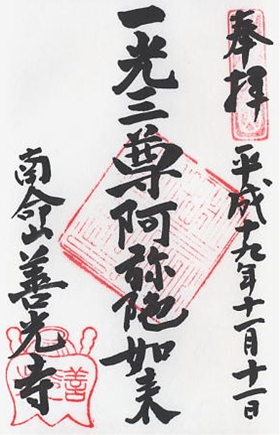 奉拝 平成十九年十一月十一日
一光三尊阿弥陀如来
南命山善光寺